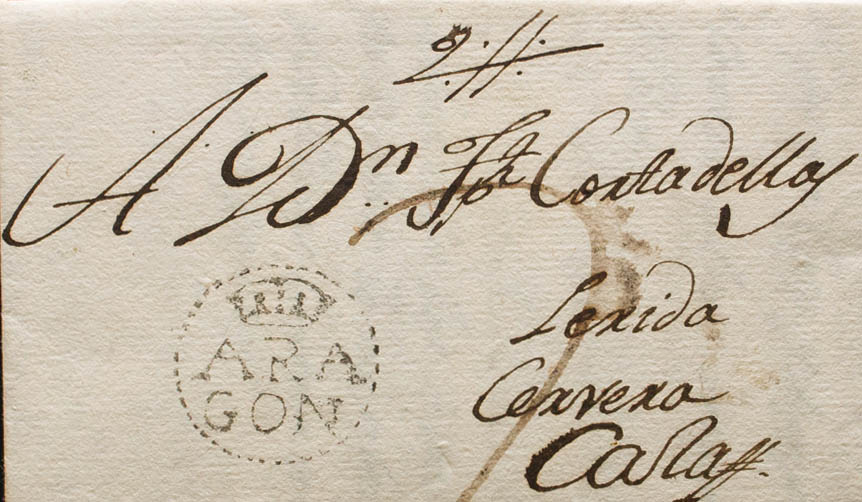 A Dn Jph Cortadellas
ARA
GON
Lerida
Cervera
Calaff.